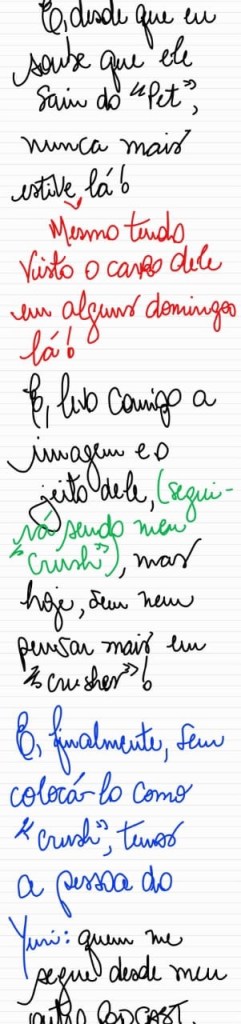 E, desde que eu
soube que ele
saiu do "Pet",
nunca mais
estive lá!
Mesmo tendo
visto o carro dele
em alguns domingos
lá!
E, levo comigo a
imagem e o
jeito dele, (segui-
rá sendo meu
"crush"), mas
hoje, sem nem
pensar mais em
"crushes"!
E, finalmente, sem
colocá-lo como
"crush", temos
a pessoa do
Yuri: quem me
segue desde meu
outro PODCAST,